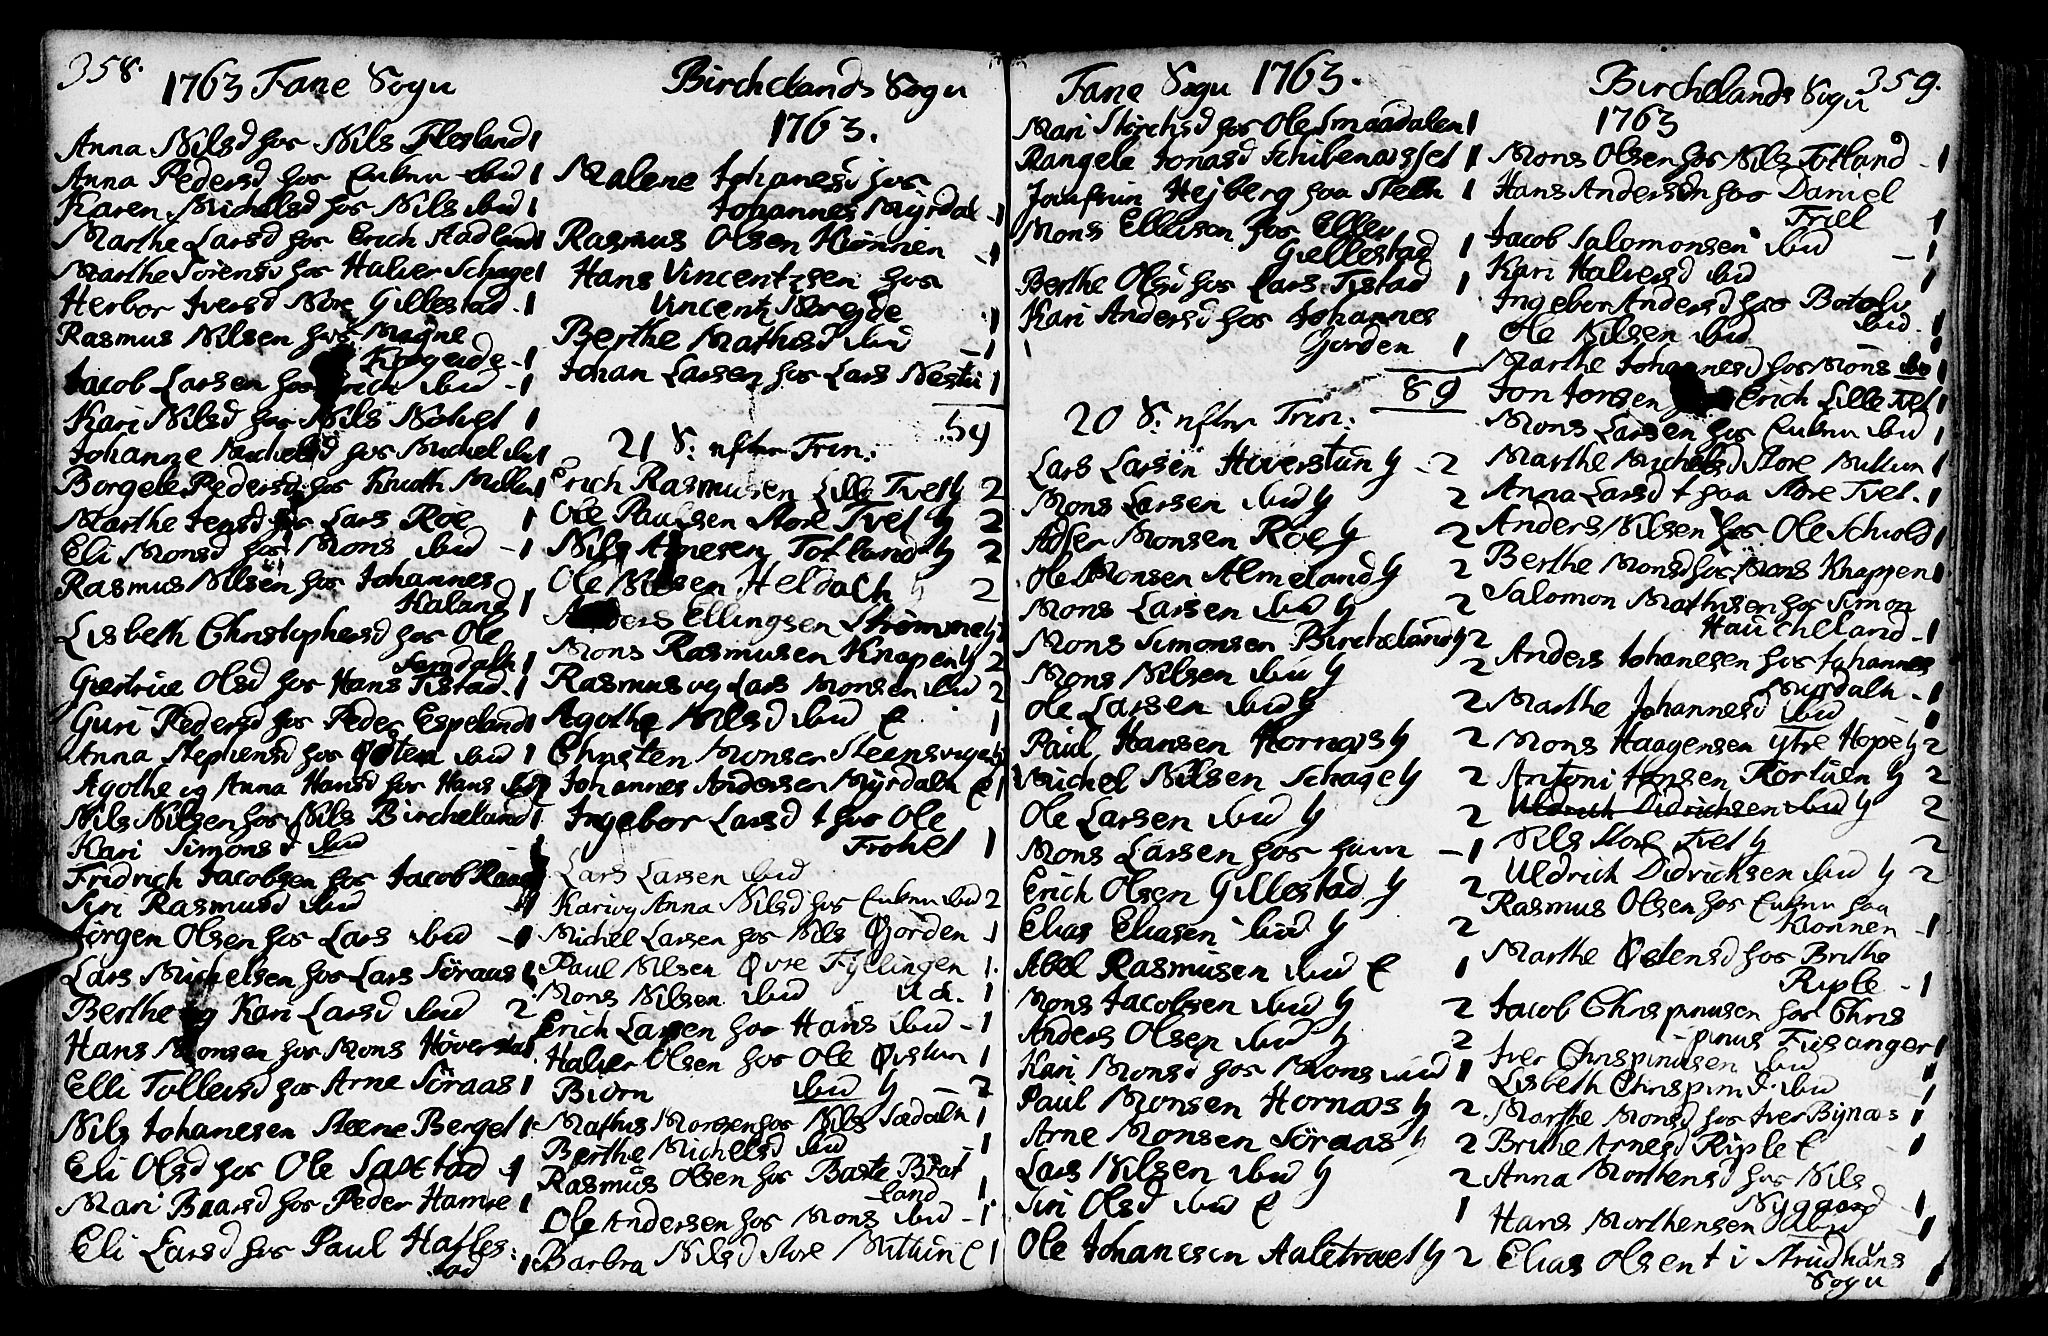 358.
1763 Fane Sogn
Anna Nilsd hos Nils Flesland 1
Anna Pedersd hos Enken ibid 1
Karen Michelsd hos Nils ibid 1
Marthe Larsd hos Erich Aadland 1
Marthe Sørensd hos Halver Schage 1
Herbor Iversd Nore Gillestad 1
Rasmus Nilsen hos Magne
Krogeide - 1
Jacob Larsen hos Erich ibid - 1
Kari Nilsd hos Nils 1
Johanne Michelsd hos Michel ibid 1
Borgele Pedersd hos Knuth 1
Marthe Jensd hos Lars Roe 1
Eli Monsd hos Mons ibid - 1
Rasmus Nilsen hos Johannes
Kaland 1
Lisbeth Christophersd hos Ole
Sandalen 1
Giertrue Olsd hos Hans Tistad 1
Guri Pedersd hos Peder Espeland 1
Anna Stephensd hos Østen ibid 1
Agothe og Anna Hansd hos Hans ibid 2
Nils Nilsen hos Nils Bircheland 1
Kari Simonsd ibid
Fridrich Jacobsen hos Jacob
Siri Rasmusd ibid 1
Jørgen Olsen hos Lars ibid - 1
Lars Michelsen hos Lars Søraas 1
Berthe og Kari Larsd ibid 2
Hans Monsen hos Mons Høverstun
Elli Tollevsd hos Arne Søraas 1
Nils Johanesen Steene Berget 1
Eli Olsd hos Ole Saxtad 1
Mari Baarsd hos Peder Hamre 1
Eli Larsd hos Paul Hafles:
tad 1
Birchelands Sogn
1763.
Malene Johanesd hos
Johannes Myrdal - 1
Rasmus Olsen Kiønnen - 1
Hans Vincentzsen hos
Vincentz Noreyde 1
Berthe Mathisd ibid - 1
Johan Larsen hos Lars Nestu 1
59
21 S: efter Trin:
Erich Rasmusen Lille Tvet h 2
Ole Paulsen Store Tvet h 2
Nils Arnesen Totland h 2
Ole Nilsen Heldalh 2
Anders Ellingsen Strømme h 2
Mons Rasmusen Knapen h 2
Rasmus og Lars Monsen ibid 2
Agothe Nilsd ibid e 1
Christen Monsen Steensvigen
Johannes Andersen Myrdaln e 1
Ingebor Larsd t hos Ole
Frohel 1
Lars Larsen ibid
Kari og Anna Nilsd hos Enken ibid 2
Michel Larsen hos Nils Giorden 1
Paul Nilsen Øvre Fyllingen 1.
Mons Nilsen ibid 1
Erich Larsen hos Hans ibid - 1
Halver Olsen hos Ole Øvstun 1
Biørn ibid h - 2
Mathis Monsen hos Nils Sædaln 1
Berthe Michelsd ibid - 1
Rasmus Olsen hos Baste Brat
land 1.
Ole Andersen hos Mons ibid - 1
Barbra Nilsd Store Mittun e 1
Fane Sogn 1763.
Mari Størchsd hos Ole Smaadalen 1
Rangele Jonasd Schibenæsset 1
Jomfruen Hejberg paa Stend 1
Mons Ellisen hos Elling
Giellestad 1
Berthe Olsd hos Lars Tistad 1
Kari Andersd hos Johannes
Giorden 1
89
20 S: efter Trin:
Lars Larsen Høverstun h - 2
Mons Larsen ibid h 2
Adser Monsen Roe h 2
Ole Monsen Almeland h 2
Mons Larsen ibid h 2
Mons Simonsen Bircheland h 2
Mons Nilsen ibid h 2
Ole Larsen ibid h 2
Paul Hansen Hornæs h 2
Michel Nilsen Schage h 2
Ole Larsen ibid h 2
Mons Larsen hos ham - 1
Erich Olsen Gillestad h 2
Elias Eliasen ibid h 2
Abel Rasmusen ibid e 1
Mons Jacobsen ibid h 2
Anders Olsen ibid h 2
Kari Monsd hos Mons ibid 1
Paul Monsen Hornæs h 2
Arne Monsen Søraas h 2
Lars Nilsen ibid h 2
Siri Olsd ibid e 1
Ole Johanesen Aaletræet h 2
Birchelands Sogn 359.
1763
Mons Olsen hos Nils Totland - 1
Hans Andersen hos Daniel
Triel 1
Jacob Salomonsen ibid - 1
Kari Halversd ibid 1
Ingebor Andersd hos Botolv
ibid 1
Ole Nilsen ibid 1
Marthe Johannesd hos Mons ibid 1
Jon Jonsen hos Erich Lille Tvet 1
Mons Larsen hos Enken ibid 1
Marthe Michelsd Store Mittun 1
Anna Larsd t paa Store Tvet. 1
Anders Nilsen hos Ole Schiold 1
Berthe Monsd hos Mons Knappen 1
Salomon Mathisen hos Simon
Haucheland - 1
Anders Johanesen hos Johannes
Myrdaln - 1
Marthe Johannesd ibid 1
Mons Haagensen ytre Hope h 2
Antoni Hansen Kortuen h 2
Uldrich Didrichsen ibid h 2
Nils Store Tvet h 2
Uldrich Didrichsen ibid h 2
Rasmus Olsen hos Enken paa
Kiønnen - 1
Marthe Østensd hos Brithe
Riple - 1
Jacob Chrispinusen hos Chris
-pinus Fusanger 1
Iver Chrispinusen ibid 1
Lisbeth Chrispinid ibid 1
Marthe Monsd hos Iver Bynæs 1
Brithe Arnesd Riple e - 1
Anna Morthensd hos Nils
Nygaard - 1
Hans Morthensen ibid 1
Elias Olsen t i Strudhavs
Sogn 1